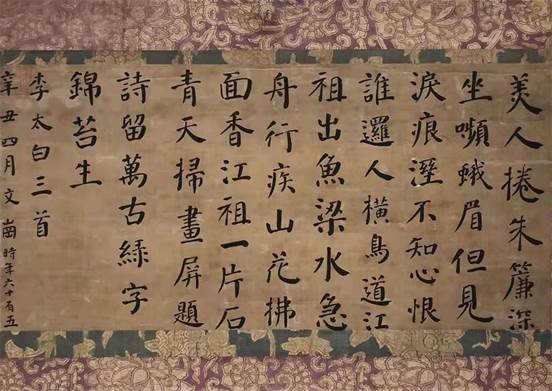 美人捲朱簾深
坐嚬蛾眉但見
淚痕溼不知心恨
誰邏人橫鳥道江
祖出魚梁水急
舟行疾山花拂
面香江祖一片石
青天掃畫屏題
詩留萬古綠字
錦苔生
李太白三首
辛丑四月文崗時年六十有五